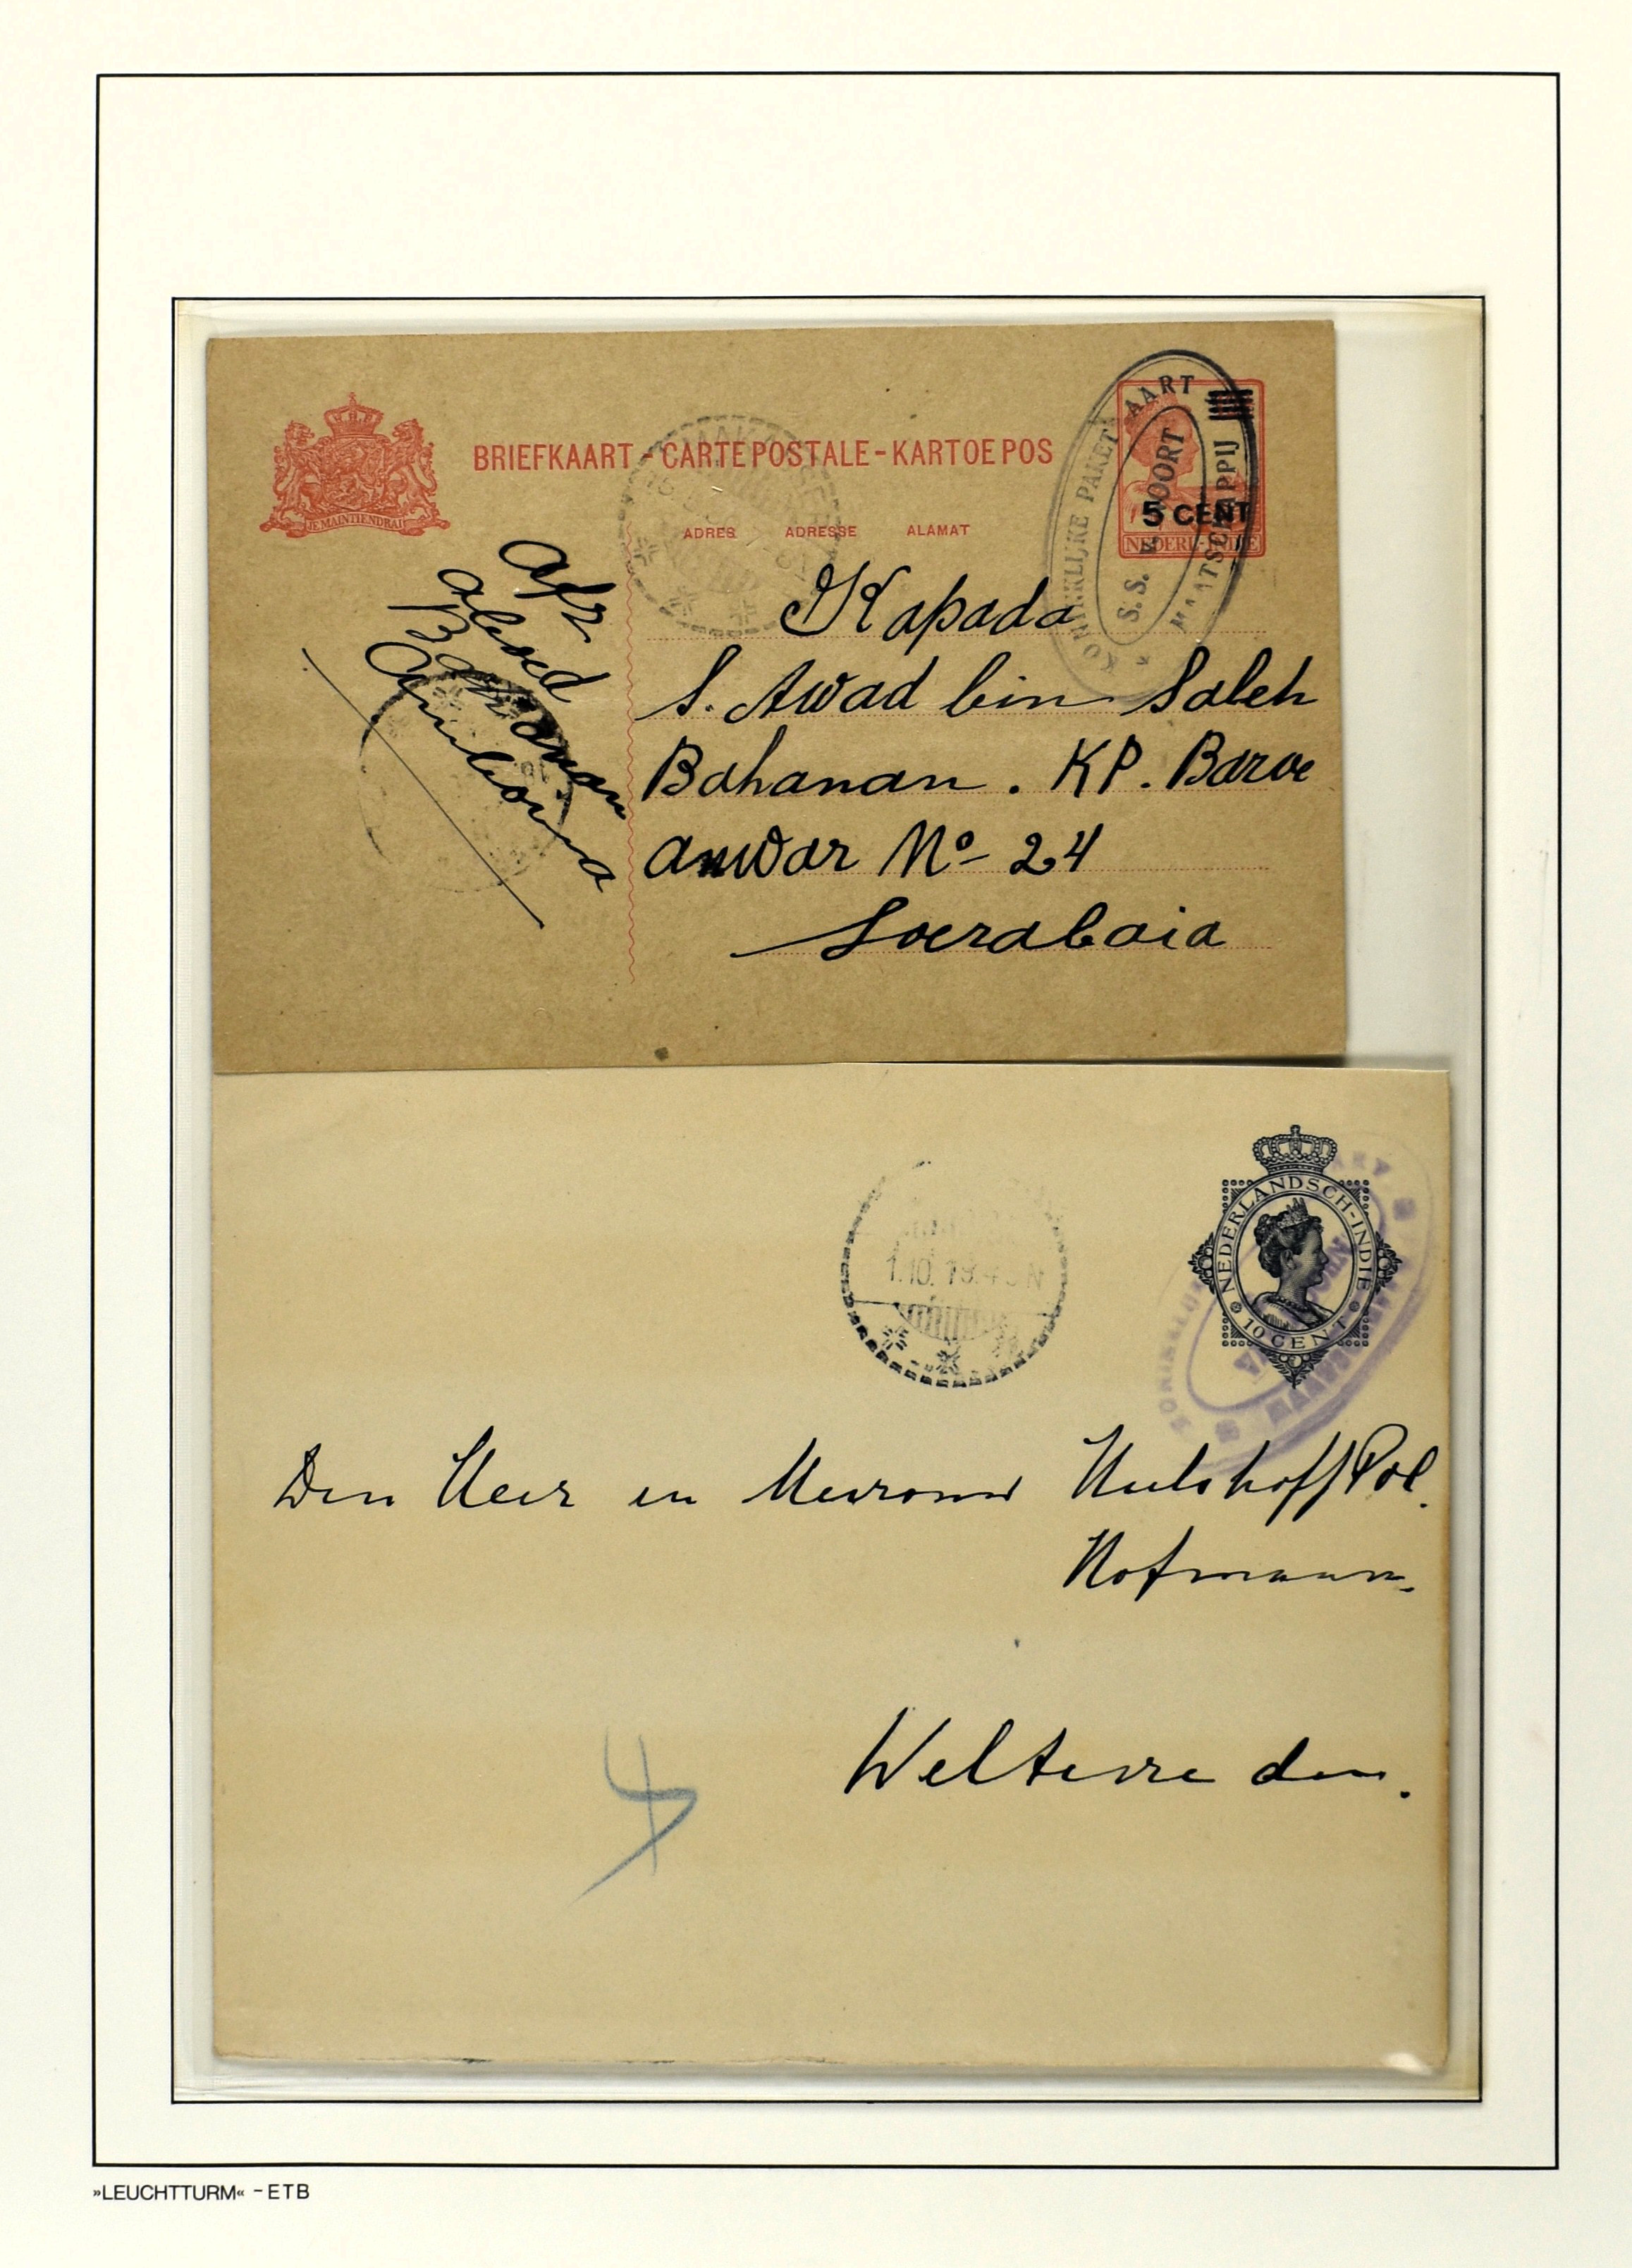 BRIEFKAART - CARTE POSTALE - KARTOE POS
ADRES ADRESSE ALAMAT
JE MAINTIENDRAI
KONINKLIJKE PAKETVAART
MAATSCHAPPIJ
S.S.
5 CENT
NEDERL-INDIE
Afz
Amboina
Kapada
S. Awad bin Saleh
Bahanan . KP. Baroe
anwar No 24
Soerabaia
NEDERLANDSCH-INDIE
10 CENT
1.10.19
Den Heer en Mevrouw Hulshoff Pol.
Hofmann.
Weltevreden.
4
»LEUCHTTURM« - ETB